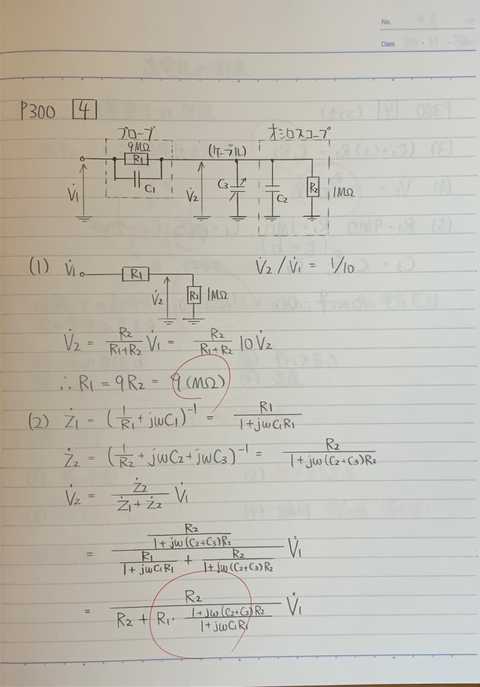 No.
Date
P300 [4]
プローブ オシロスコープ
9MΩ (ケーブル)
R1
C1 C3 C2 R2 1MΩ
V̇1 V̇2
(1) V̇1 R1 V̇2 / V̇1 = 1/10
V̇2 R2 1MΩ
V̇2 = R2/(R1+R2) V̇1 = R2/(R1+R2) 10V̇2
∴ R1 = 9R2 = 9(MΩ)
(2) Ż1 = (1/R1 + jωC1)^-1 = R1/(1+jωC1R1)
Ż2 = (1/R2 + jωC2 + jωC3)^-1 = R2/(1+jω(C2+C3)R2)
V̇2 = Ż2/(Ż1+Ż2) V̇1
= (R2/(1+jω(C2+C3)R2))/(R1/(1+jωC1R1) + R2/(1+jω(C2+C3)R2)) V̇1
= R2/(R2 + R1・(1+jω(C2+C3)R2)/(1+jωC1R1)) V̇1